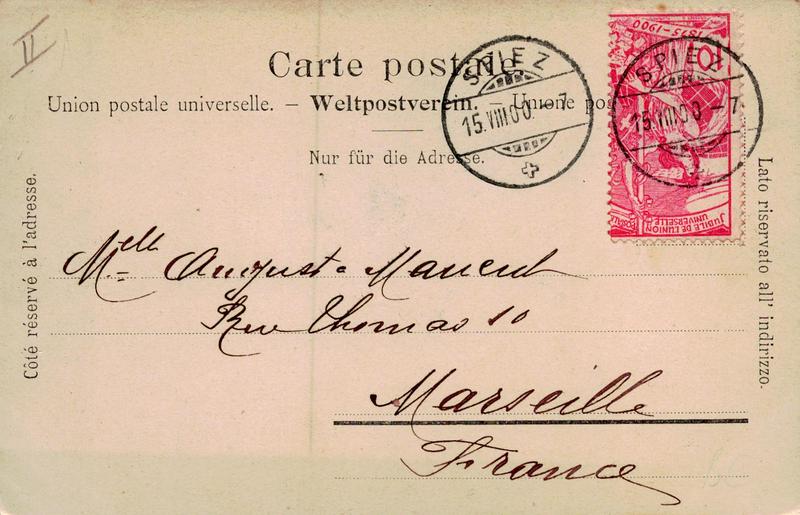 II
Carte postale
Union postale universelle. – Weltpostverein. – Unione pos
Nur für die Adresse.
Côté réservé à l'adresse.
Lato riservato all' indirizzo.
SPIEZ
15.VIII.00.–7
SPIEZ
15.VIII.00–7
1875-1900
10
JUBILÉ DE L'UNION
UNIVERSELLE
POSTALE
Mlle August
Rue Thomas 10
Marseille
France